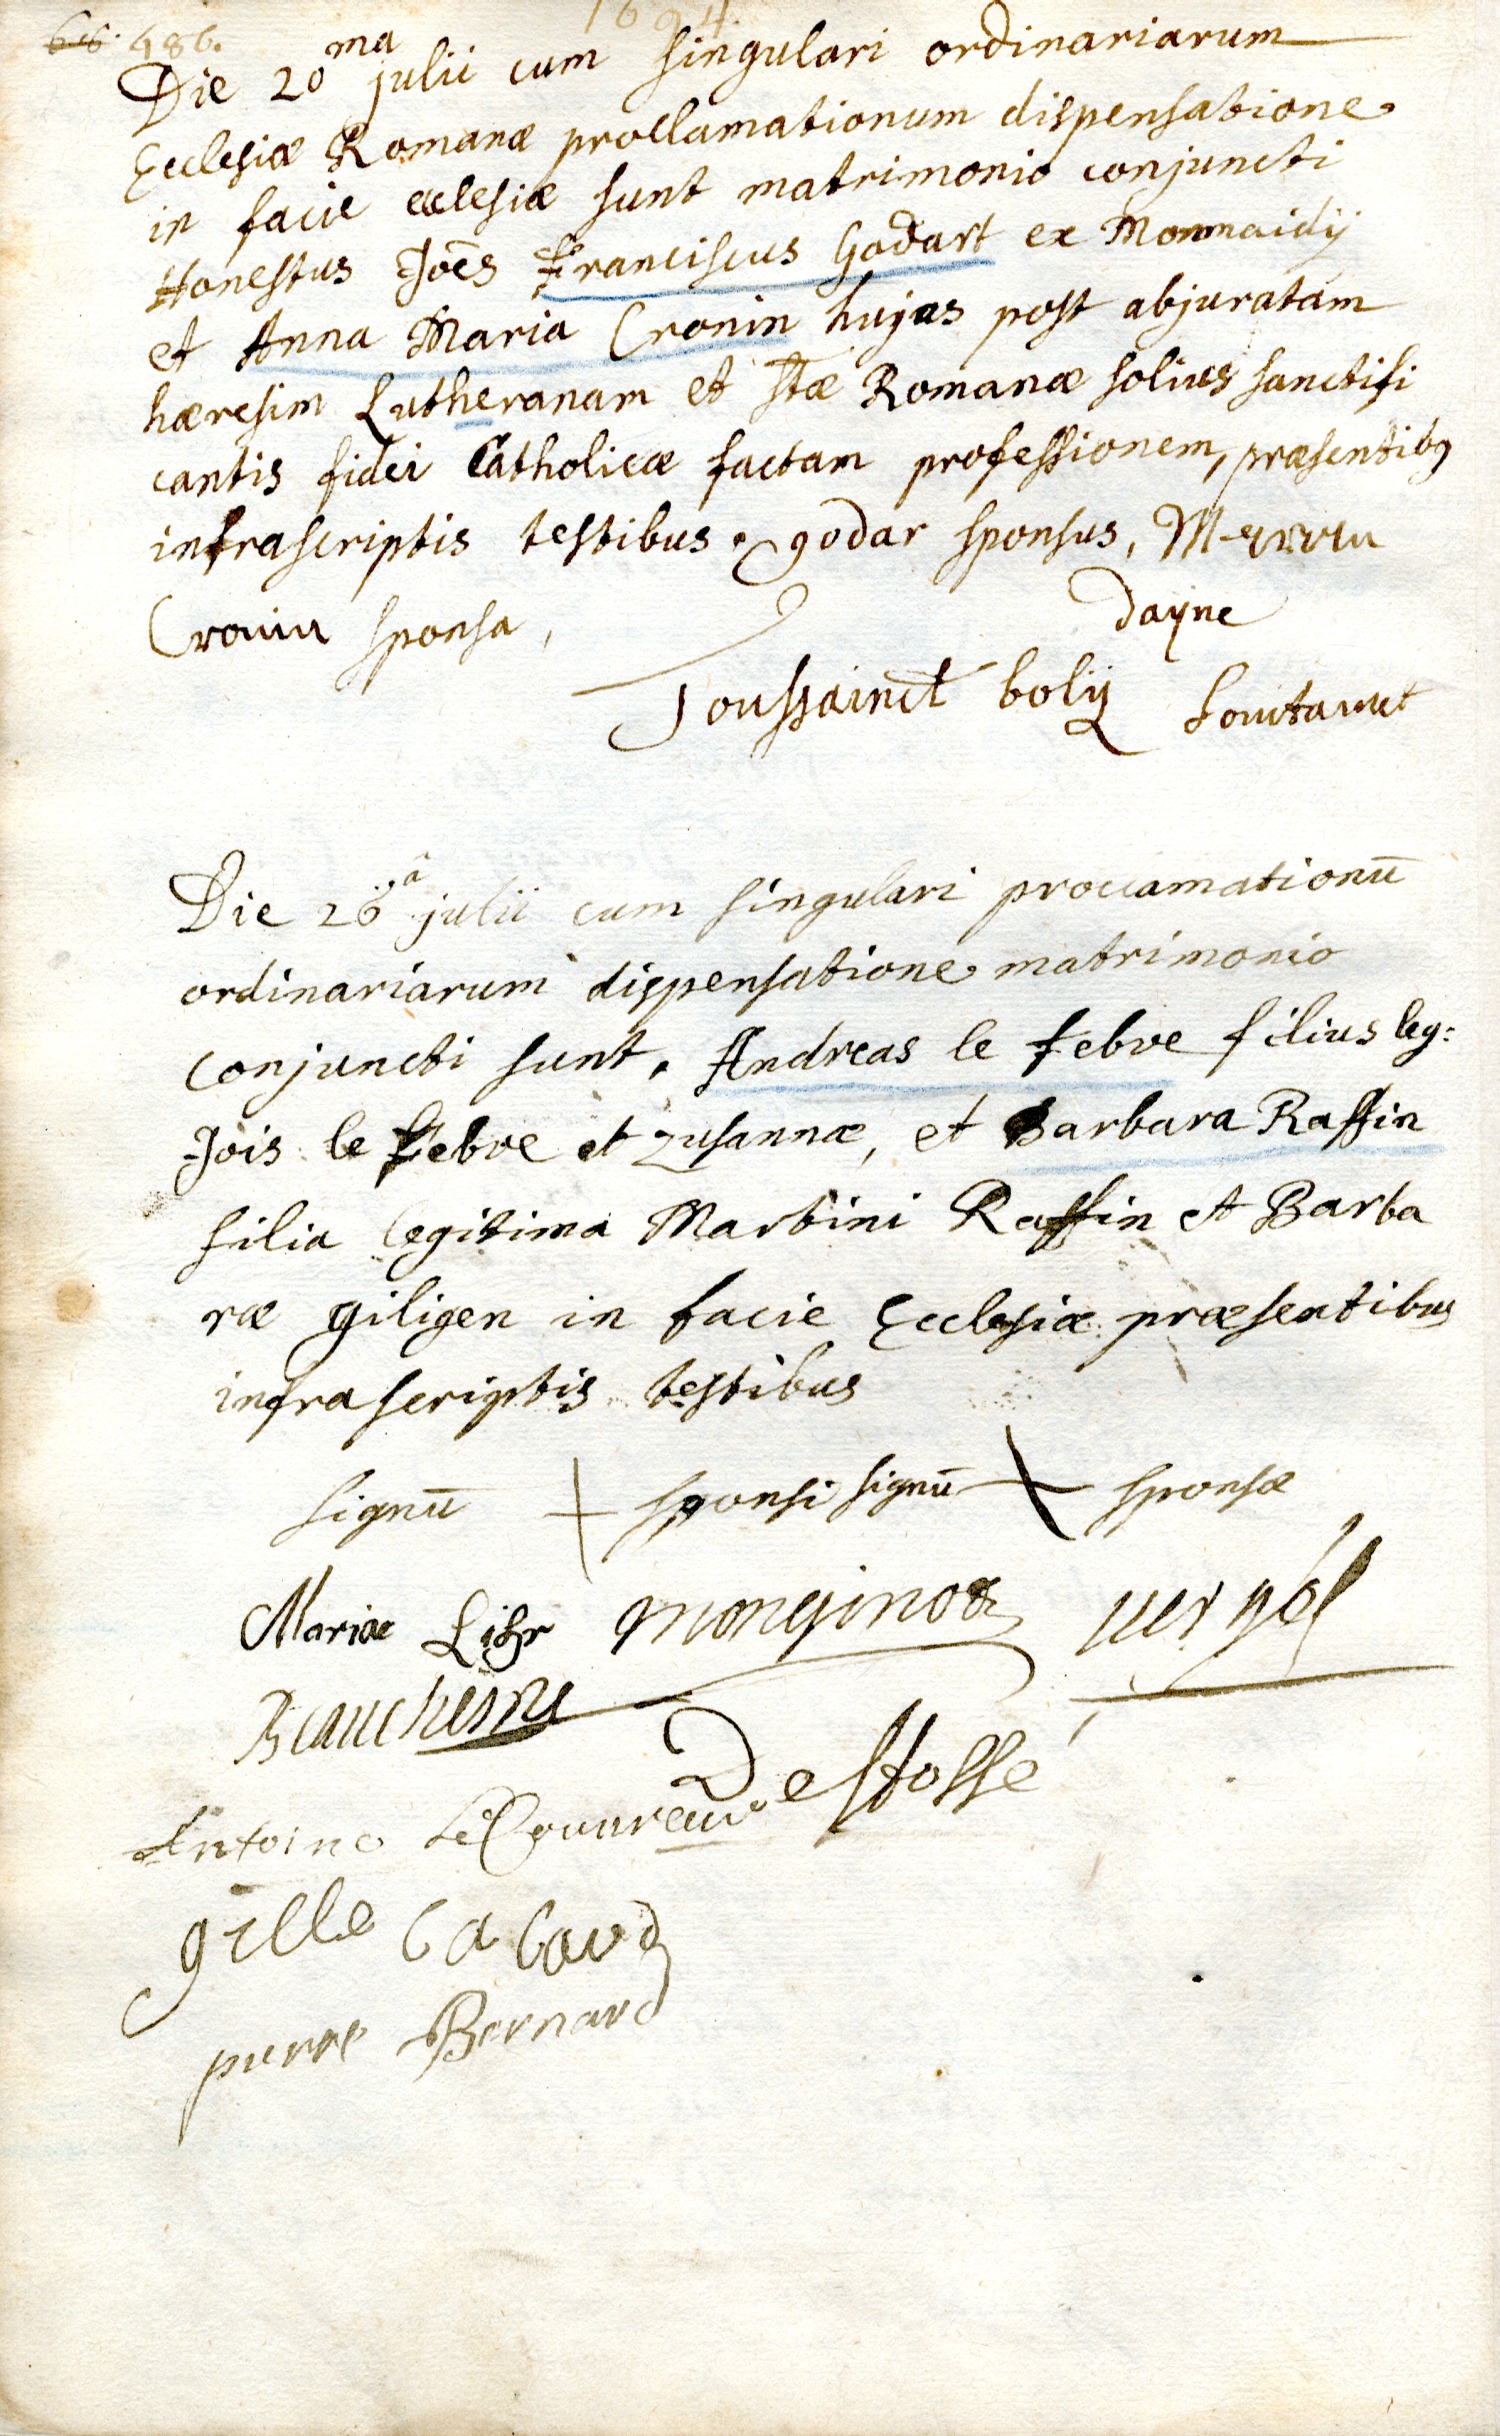 486. 1694.
Die 20ma julii cum singulari ordinariarum
Ecclesiæ Romanæ procllamationum dispensatione
in facie ecclesiæ sunt matrimonio conjuncti
Honestus Joēs Franciscus Godart ex Monmaidij
et Anna Maria Cronin hujas post abjuratam
hæresim Lutheranam et Stæ Romanæ solius sanctifi
cantis fidei Catholicæ factam professionem, præsentibus
infrascriptis testibus. godar sponsus,
Cronin sponsa,
dayne
Toussainct boly
Die 26â julii cum singulari proclamationū
ordinariarum dispensatione matrimonio
conjuncti sunt. Andreas le febve filius leg:
Jois le febve et zusannæ, et Barbara Raffin
filia legitima Martini Raffin et Barba
ræ giligen in facie Ecclesiæ præsentibus
infrascriptis testibus
signū + sponsi signū + sponsæ
Mariae monginot
Beauchesne
De stossé
Antoine Le Couureur
gille
pierre Bernard